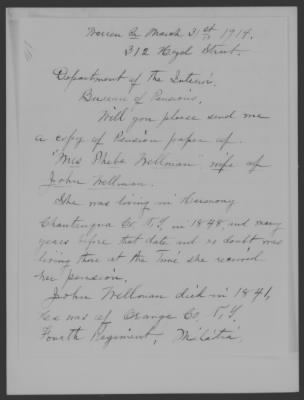 Warren Pa March 31st 1914.
312 Hazel Street.
Department of the Interior.
Bureau of Pensions.
Will you please send me
a copy of Pension paper of.
"Mrs Phebe Wellman" wife of
John Wellman.
She was living in Harmony
Chautauqua Co. N.Y. in 1848 and many
years before that date and no doubt was
living there at the Time she received
her pension.
John Wellman died in 1841,
was of Orange Co. N.Y.
Fourth Regiment, Militia,